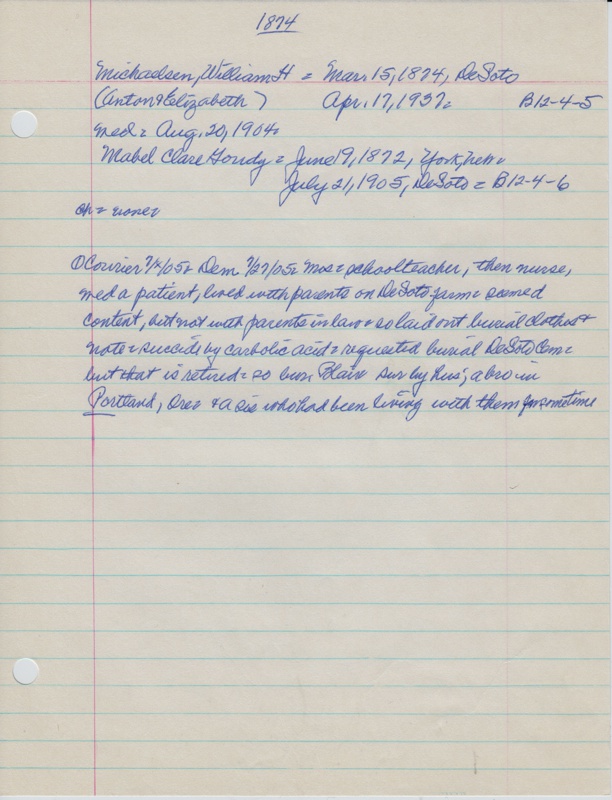 1874
Michaelsen, William H = Mar. 15, 1874, DeSoto
(Anton & Elizabeth) Apr. 17, 1937 = B12-4-5
med = Aug. 20, 1904 =
Mabel Clare = June 19, 1872, York, Neb =
July 21, 1905, DeSoto = B12-4-6
ch = none =
Courier 7/ /05 & Dem 7/27/05 = Mrs = schoolteacher, then nurse,
med a patient, lived with parents on DeSoto farm = seemed
content, but not with parents in law = so laid out burial clothes &
note = suicide by carbolic acid = requested burial DeSoto Cem =
but that is retired = so bur. Blair sur by hus; a bro in
Portland, Ore = & a sis who had been living with them for sometime